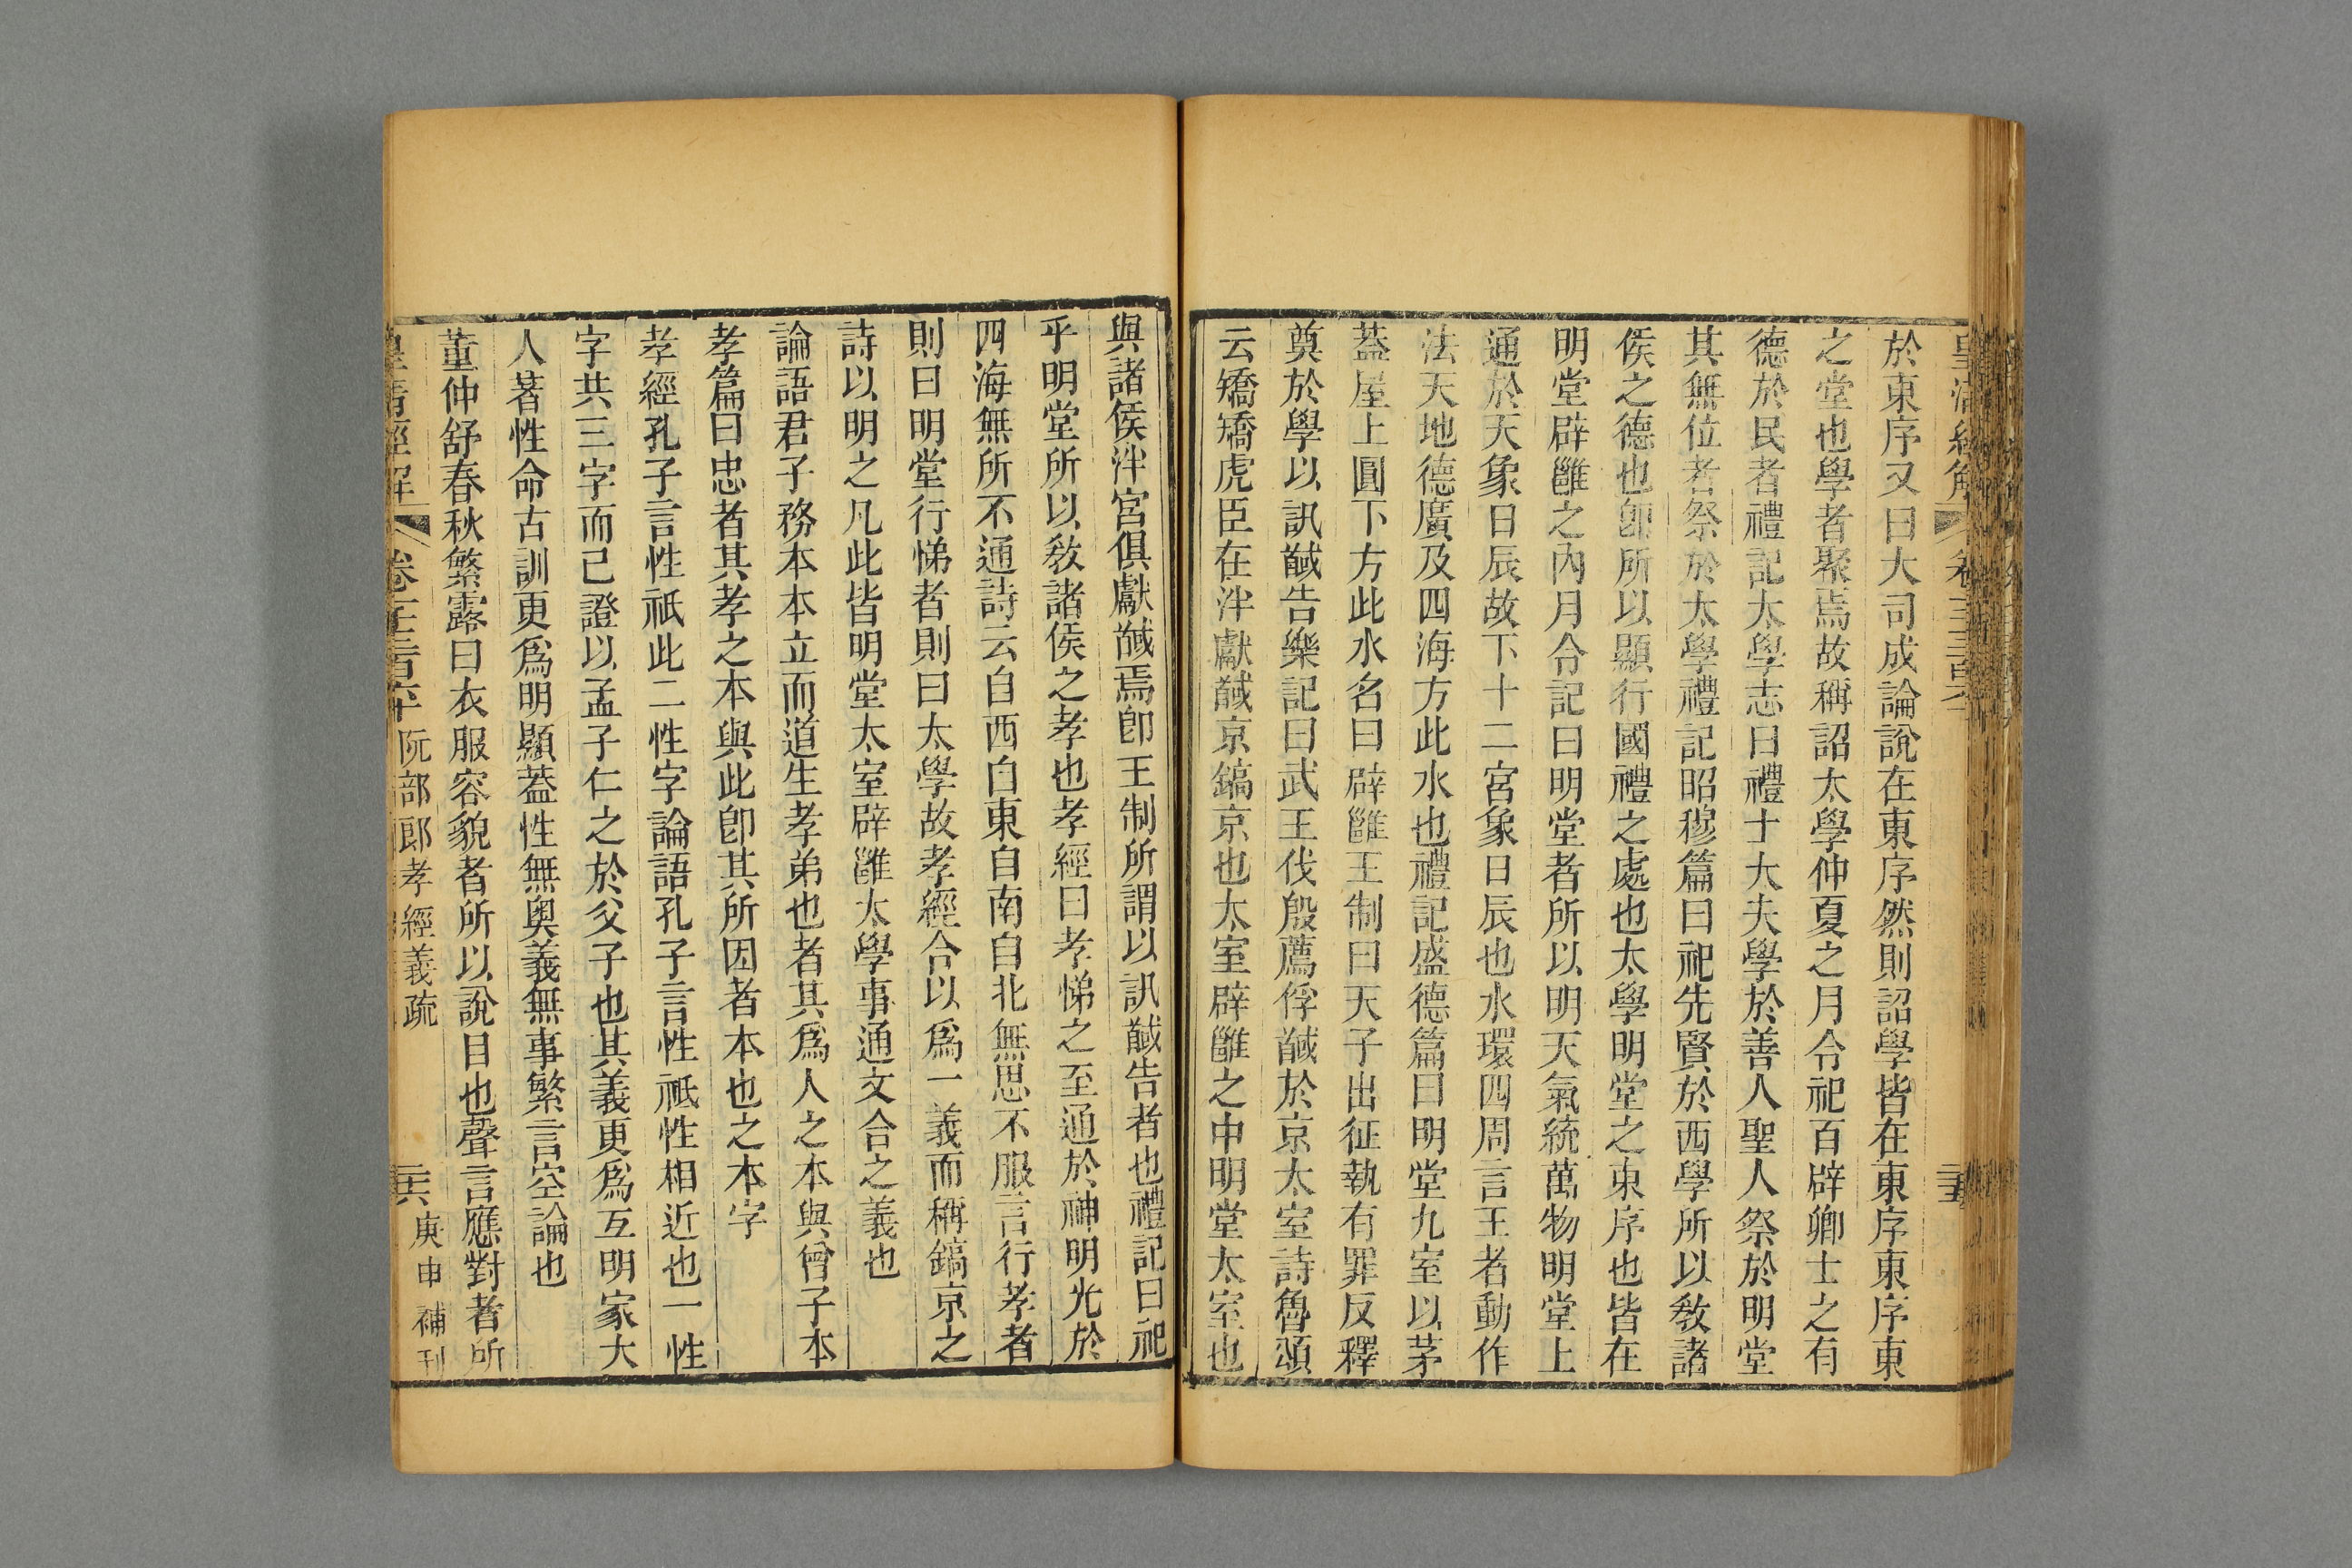 於東序又曰大司成論說在東序然則詔學皆在東序東序東
之堂也學者聚焉故稱詔太學仲夏之月令祀百辟卿士之有
德於民者禮記太學志曰禮士大夫學於善人聖人祭於明堂
其無位者祭於太學禮記昭穆篇曰祀先賢於西學所以敎諸
侯之德也卽所以顯行國禮之處也太學明堂之東序也皆在
明堂辟雝之內月令記曰明堂者所以明天氣統萬物明堂上
通於天象日辰故下十二宮象日辰也水環四周言王者動作
法天地德廣及四海方此水也禮記盛德篇曰明堂九室以茅
葢屋上圓下方此水名曰辟雝王制曰天子出征執有罪反釋
奠於學以訊馘告樂記曰武王伐殷薦俘馘於京太室詩魯頌
云矯矯虎臣在泮獻馘京鎬京也太室辟雝之中明堂太室也
與諸侯泮宮俱獻馘焉卽王制所謂以訊馘告者也禮記曰祀
乎明堂所以敎諸侯之孝也孝經曰孝悌之至通於神明光於
四海無所不通詩云自西自東自南自北無思不服言行孝者
則曰明堂行悌者則曰太學故孝經合以爲一義而稱鎬京之
詩以明之凡此皆明堂太室辟雝太學事通文合之義也
論語君子務本本立而道生孝弟也者其爲人之本與曾子本
孝篇曰忠者其孝之本與此卽其所因者本也之本字
孝經孔子言性祇此二性字論語孔子言性祇性相近也一性
字共三字而已證以孟子仁之於父子也其義更爲互明家大
人著性命古訓更爲明顯葢性無奧義無事繁言空論也
董仲舒春秋繁露曰衣服容貌者所以說目也聲言應對者所
皇淸經解
卷一千三百六十
阮部郎孝經義疏
三六
庚申補刊